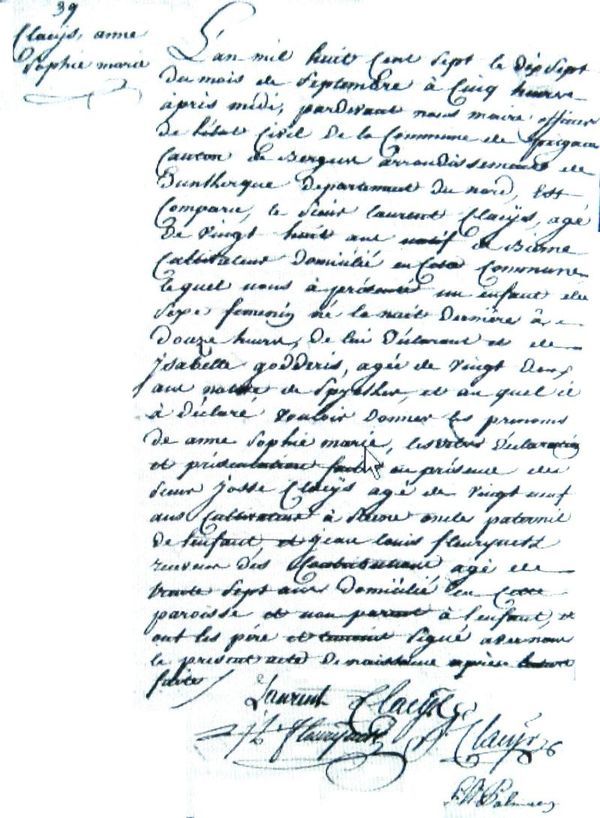 39
Claeijs, anne
Sophie marie
L'an mil huit Cent Sept le dix Sept
du mois de Septembre à Cinq heures
après midi, pardevant nous maire officier
de l'état Civil de la Commune de
Canton de Bergues arrondissement de
Duntkerque departement du nord, Est
Comparu, le Sieur laurent Claeijs, agé
de vingt huit ans natif de Bierne
Cultivateur domicilié en Cette Commune
lequel nous à présenté un enfant du
Sexe femenin né la nuit dernière à
douze heures, de lui déclarant et de
Isabelle godderis, agée de vingt deux
ans native de Spycker, et au quel il
à déclaré vouloir donner les prenoms
de anne Sophie marie, les dites déclaration
et présentation faites en présence des
Sieur Josse Claeijs agé de vingt neuf
ans Cultivateur à oncle paternel
de l'enfant et jean louis fleurynck
receveur des Contributions agé de
trente Sept ans domicilié en Cette
paroisse et non parent à l'enfant, et
ont les père et temoins Signé avec nous
le present acte de naissance après lecture
faite
Laurent Claeijs
fleurynck J Claeijs